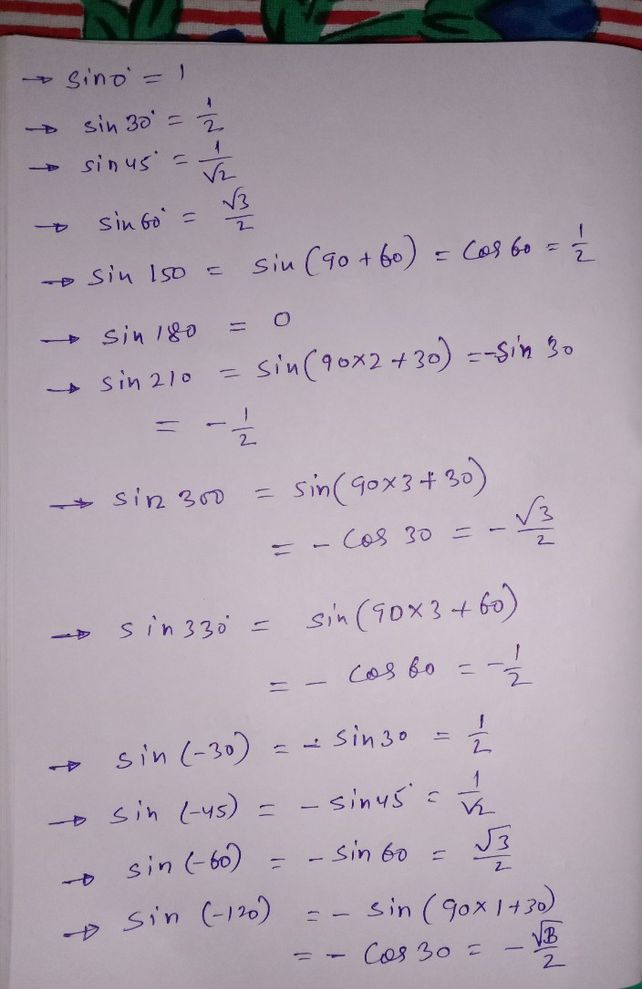 → sin 0° = 1
→ sin 30° = 1/2
→ sin 45° = 1/√2
→ sin 60° = √3/2
→ sin 150 = sin (90 + 60) = cos 60 = 1/2
→ sin 180 = 0
→ sin 210 = sin (90×2 + 30) = -sin 30
= - 1/2
→ sin 300 = sin (90×3 + 30)
= - cos 30 = - √3/2
→ sin 330° = sin (90×3 + 60)
= - cos 60 = - 1/2
→ sin (-30) = - sin 30 = 1/2
→ sin (-45) = - sin 45° = 1/√2
→ sin (-60) = - sin 60 = √3/2
→ sin (-120) = - sin (90×1+30)
= - cos 30 = - √3/2